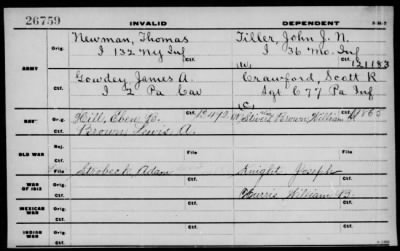 26759
INVALID
DEPENDENT
3-113
ARMY
Orig.
Newman, Thomas
Tiller, John J. N.
I 132 NY Inf
I 36 Mo. Inf
Ctf.
W.
121183
Orig.
Gowdey, James A.
Crawford, Scott R
I 2 Pa Cav
Sgt C 77 Pa Inf
Ctf.
C.
REV'
Orig.
Hill, Eben
Brown, William
Ctf.
Brown Lewis A.
OLD WAR
File
Ctf.
WAR OF 1812
Orig.
Strobeck Adam
Knight Joseph
Ctf.
Burris, William B.
MEXICAN WAR
Orig.
Ctf.
INDIAN WAR
Orig.
Ctf.